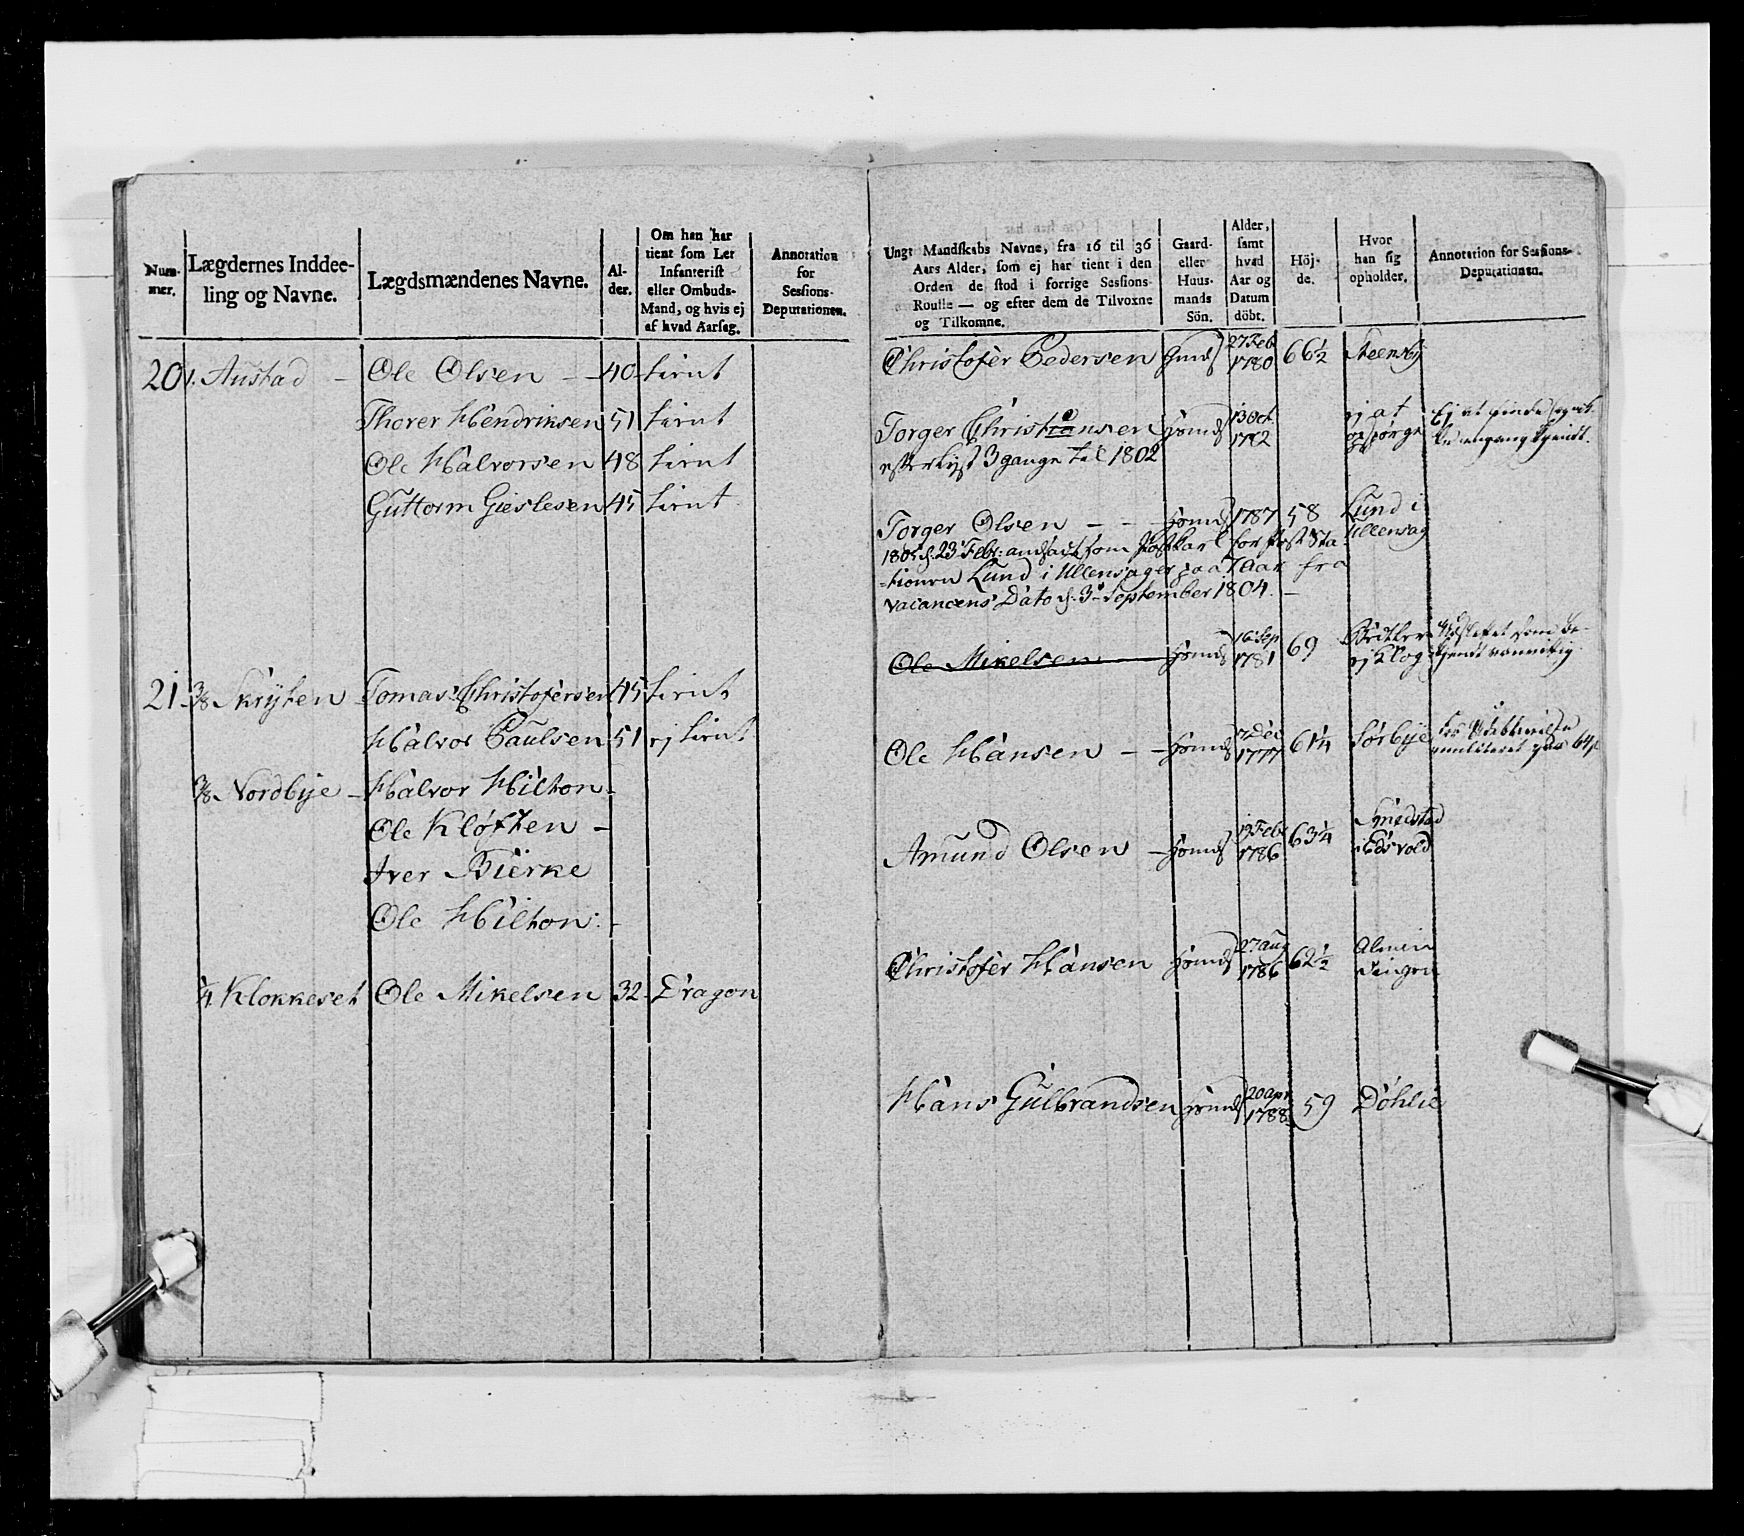 Num-
mer.
Lægdernes Inddee-
ling og Navne.
Lægdsmændenes Navne.
Al-
der.
Om han har
tient som Let
Infanterist
eller Ombuds-
Mand, og hvis ej
af hvad Aarsag.
Annotation
for
Sessions-
Deputationen.
20 1. Austad - Ole Olsen - 40 tient
Thorer Hendriksen 51 tient
Ole Halvorsen 48 tient
Guttorm Gieslesen 45 tient
21 - 3/8 Skryten - Tomas Christofersen 45 tient
Halvor Paulsen 51 ej tient
3/8 Nordbye - Halvor Hilton -
Ole Kløften -
Iver Bierke
Ole Hilton: -
1/4 Klokkeset Ole Mikelsen 32 - Dragon
Ungt Mandskabs Navne, fra 16 til 36
Aars Alder, som ej har tient i den
Orden de stod i forrige Sessions-
Roulle — og efter dem de Tilvoxne
og Tilkomne.
Gaard-
eller
Huus-
mands
Sön.
Alder,
samt
hvad
Aar og
Datum
döbt.
Höj-
de.
Hvor
han sig
opholder.
Annotation for Sessions-
Deputationen.
Christofer Pedersen 27 Feb 1780 66 1/2
Torger Christiansen 13 Oct. 1782 ej at opspørge
efterlyst 3 gange til 1802
Ej at finde
Torger Olsen - - 1787 58 Lund i Ullensag
1805 d. 23 Febr: ansadt som Postkarl for Post Sta-
tionen Lund i Ullensager paa 7 Aar fra
vacancens Dato d. 3 September 1804. -
Ole Mikelsen 16 Sep 1781 69 ej klog
Udslettet som be-
kjendt vanvittig
Ole Hansen - - 7 Dec 1777 61 1/4 Sørbye
Amund Olsen - 19 Febr 1786 63 1/4 Smedstad i Edsvold
Christofer Hansen 27 Aug 1786 62 1/2 Almeindingen
Hans Gulbrandsen 20 Apr 1788 59 Döhlie